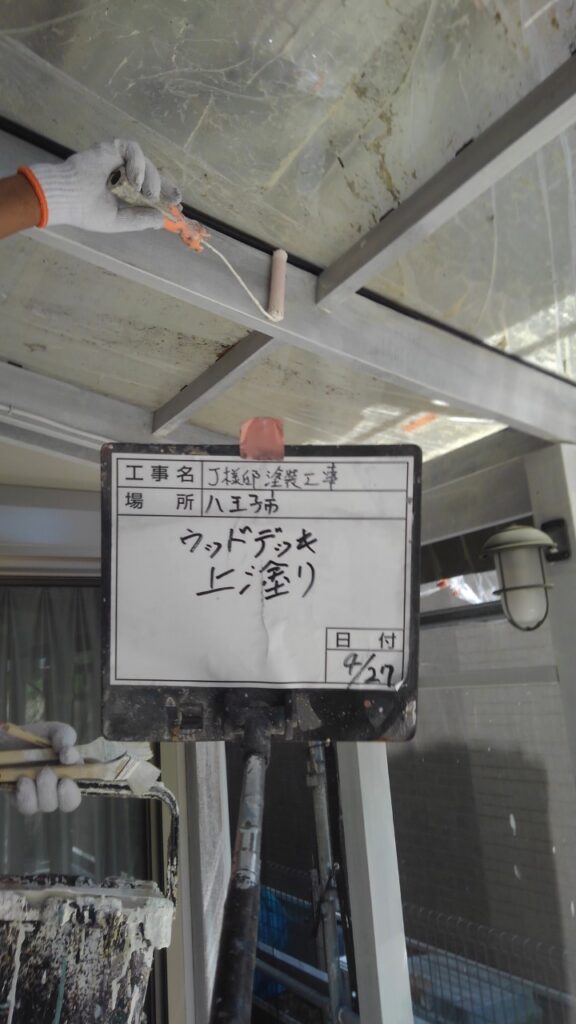 工事名 J様邸塗装工事
場所 八王子市
ウッドデッキ
上塗り
日付
4/27